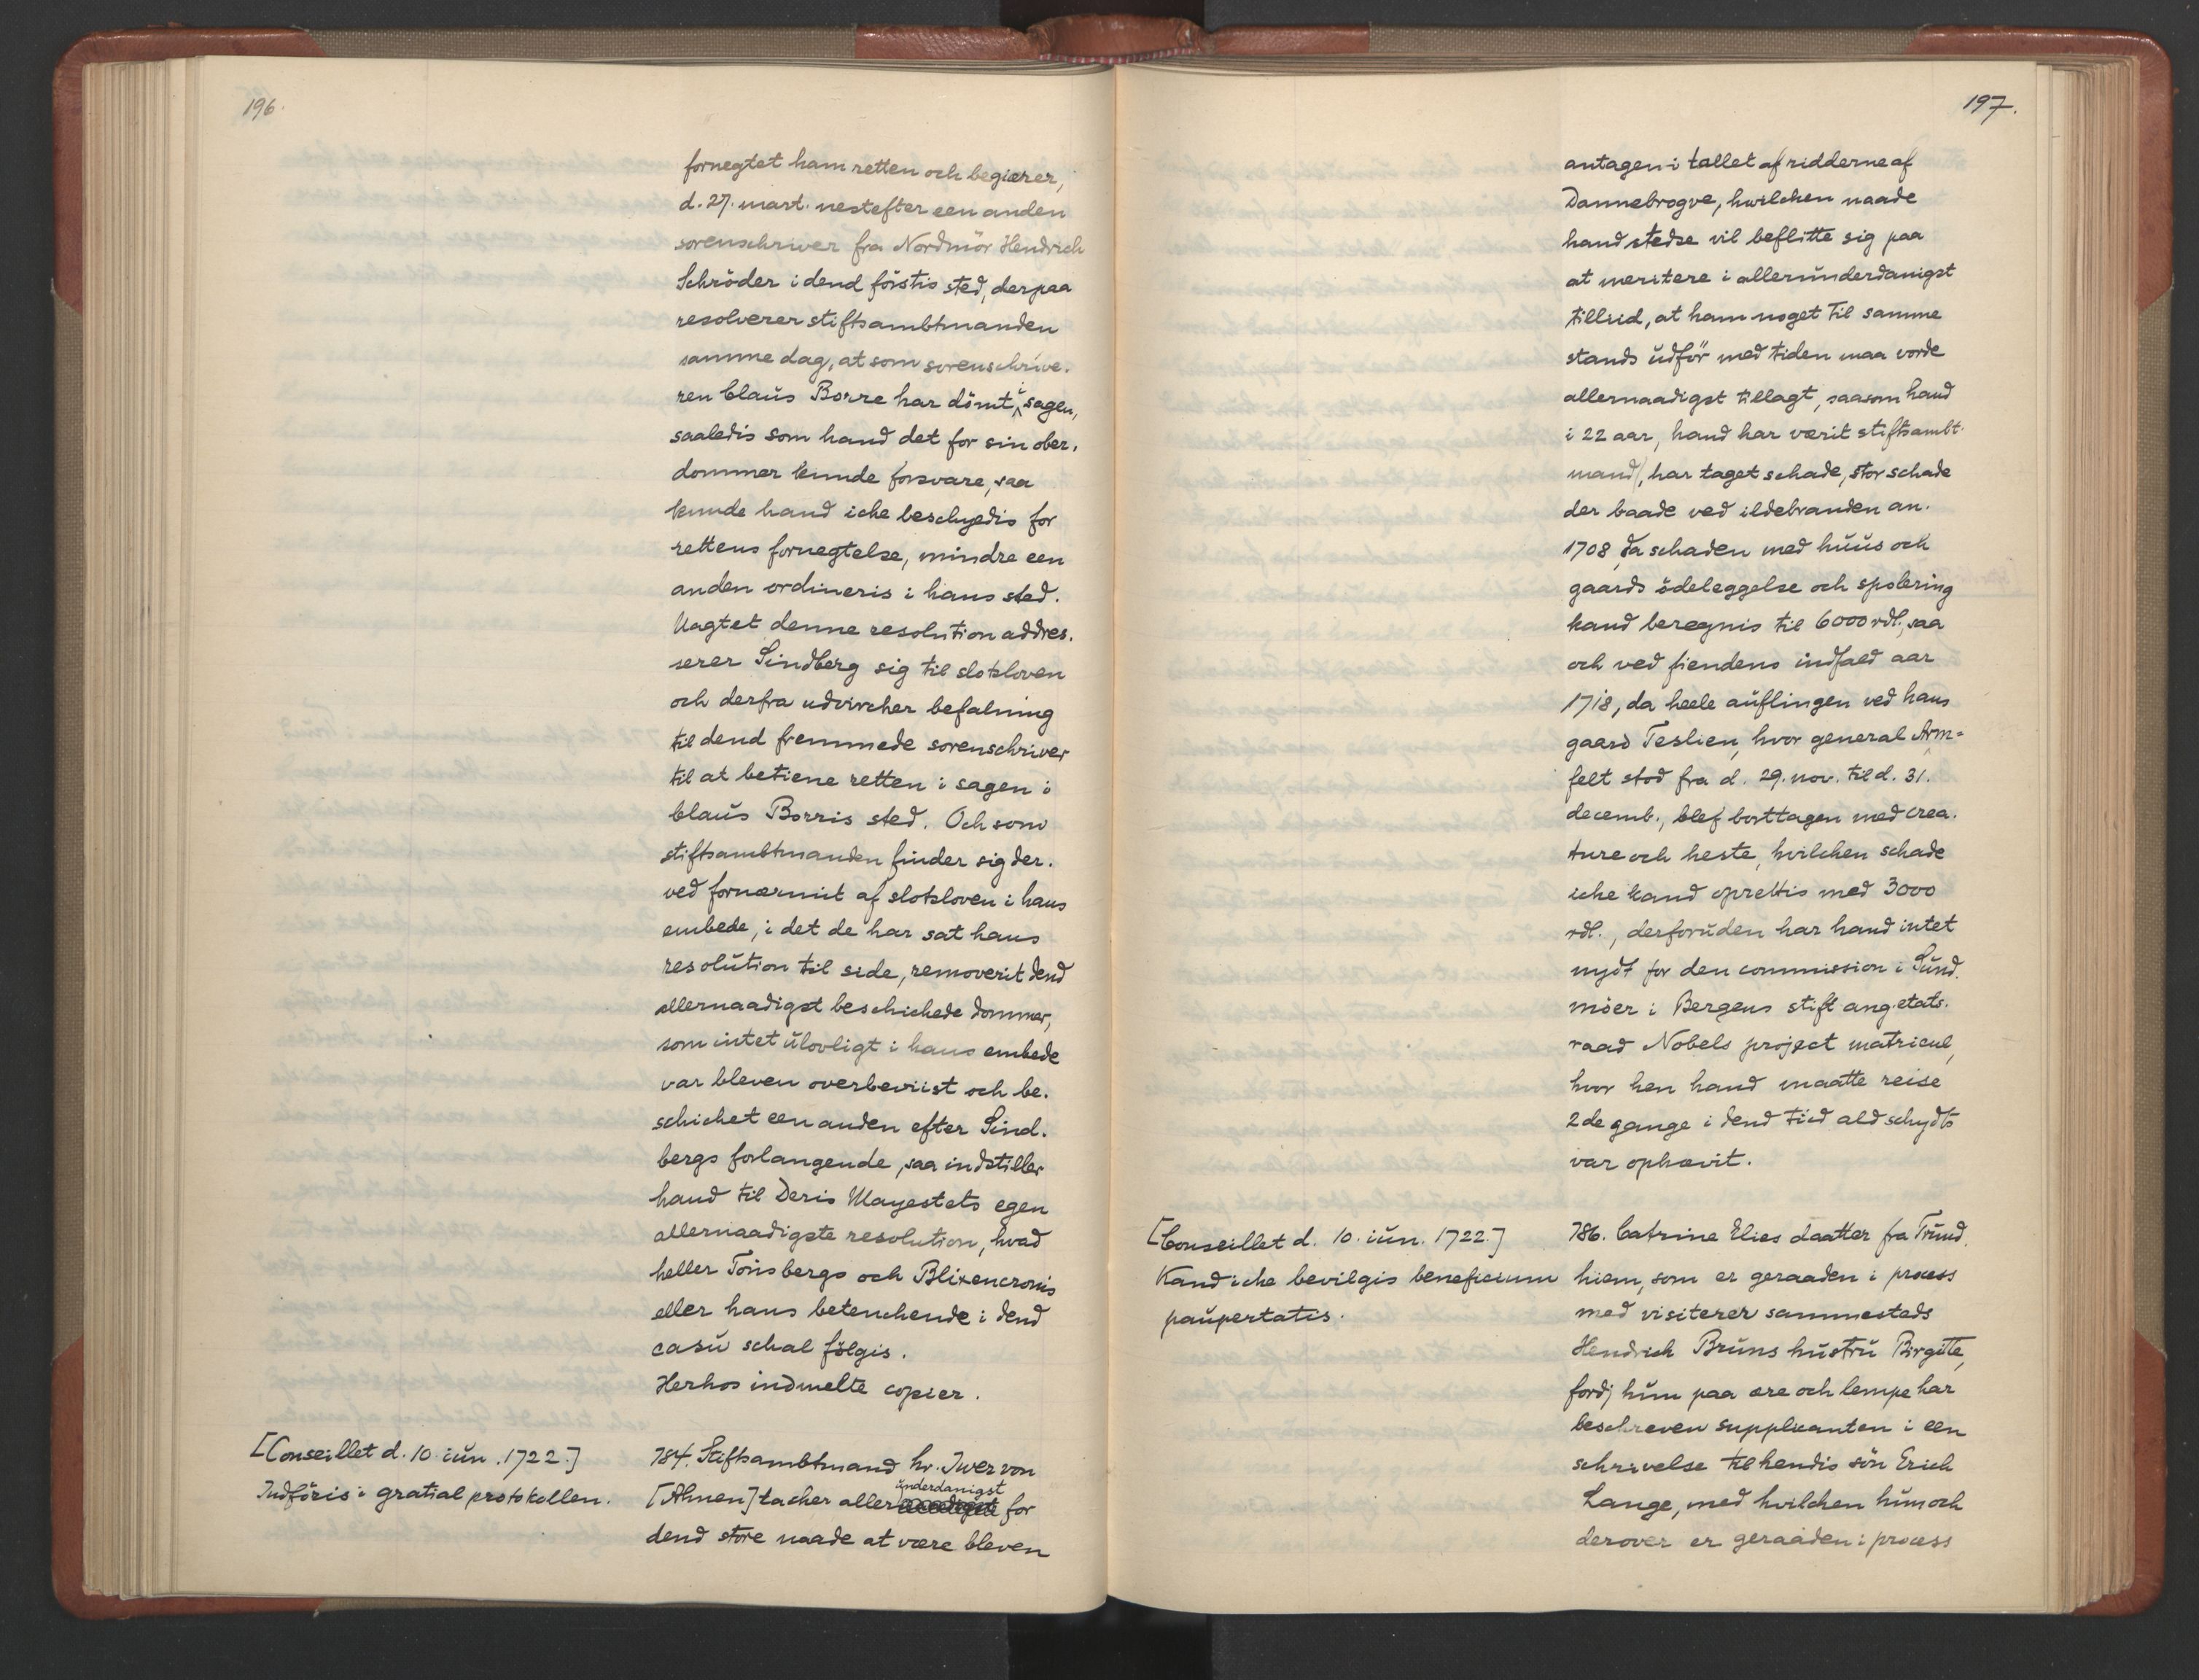 196.
fornegtet ham retten och begiærer,
d. 27. mart. nestefter een anden
sorenschriver fra Nordmör Hendrich
Schröder i dend förstis sted, derpaa
resolverer stiftsambtmanden
samme dag, at som sorenschrive-
ren Claŭs Borre har dömt i sagen,
saaledis som hand det for sin ober-
dommer kunde forsvare, saa
kunde hand iche beschyedis for
rettens fornegtelse, mindre een
anden ordineris i hans sted.
Uagtet denne resolution addres-
serer Lindberg sig til slotsloven
och derfra udvircher befalning
til dend fremmede sorenschriver
til at betiene retten i sagen i
Claŭs Borris sted. Och som
stiftsambtmanden finder sig der-
ved fornærmit af slotsloven i hans
embede, i det de har sat hans
resolŭtion til side, removerit dend
allernaadigst beschichede dommer,
som intet ŭlovligt i hans embede
var bleven overbeviist och be-
schichet een anden efter Lind-
bergs forlangende, saa indstiller
hand til Deris Mayestets egen
allernaadigste resolution, hvad
heller Tönsbergs och Blixencronis
eller hans betenchende i dend
casŭ schal fölgis.
Herhos indmelte copier.
[Conseillet d. 10. iŭn. 1722.]
Indföris i gratial protokollen.
784. Stiftsambtmand hr. Iwer von
[Ahnen] tacher allerŭnderdanigst for
dend store naade at være bleven
197.
antagen i tallet af ridderne af
Dannebrogve, hwilchen naade
hand stedse vil beflitte sig paa
at meritere i allerŭnderdanigst
tillid, at ham noget til samme
stands ŭdför med tiden maa vorde
allernaadigst tillagt, saasom hand
i 22 aar, hand har værit stiftsambt-
mand, har taget schade, stor schade
der baade ved ildebranden an.
1708, da schaden med hŭŭs och
gaards ödeleggelse och spolering
kand beregnis til 6000 rdl., saa
och ved fiendens indfald aar
1718, da heele aŭflingen ved hans
gaard Teslien, hvor general Arm-
felt stod fra d. 29. nov. til d. 31.
decemb., blef borttagen med crea-
ture och heste, hvilchen schade
iche kand oprettis med 3000
rdl., derforŭden har hand intet
nydt for den commission i Sŭnd-
möer i Bergens stift ang. etats-
raad Nobels project matricul,
hvor hen hand maatte reise
2de gange i dend tiid ald schydts
var ophævit.
[Conseillet d. 10. iŭn. 1722.]
Kand iche bevilgis beneficium
paŭpertatis.
786. Catrine Elies daatter fra Trŭnd-
hiem, som er geraaden i process
med visiterer sammesteds
Hendrich Brŭns hŭstrŭ Birgitte,
fordj hŭn paa ære och lempe har
beschreven supplicanten i een
schrivelse til hendis sön Erich
Lange, med hvilchen hŭn och
derover er geraaden i process